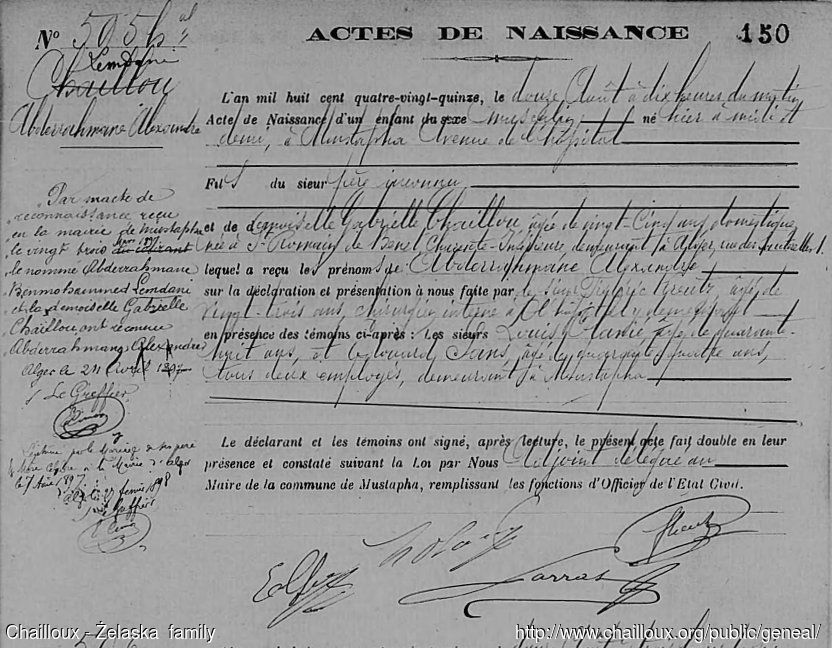 ACTES DE NAISSANCE
150
Nº 505
Lemdani
Chaillou
Abderrahmane Alexandre
L'an mil huit cent quatre-vingt-quinze, le douze Août à dix heures du matin
Acte de Naissance d'un enfant du sexe masculin né hier à midi et
demi, à Mustapha Avenue de l'hôpital
Fils du sieur père inconnu
et de demoiselle Gabrielle Chaillou, âgée de vingt-cinq ans, domestique
née à St Romain de Benet Charente-Inférieure, demeurant à Alger, rue
lequel a reçu les prénoms de Abderrahmane Alexandre
sur la déclaration et présentation à nous faite par le sieur Frédéric âgé de
vingt-trois ans, chirurgien interne à l'hôpital y demeurant
en présence des témoins ci-après : Les sieurs Louis âgé de quarante-
huit ans, et Edouard Sans, âgé de quarante quatre ans,
tous deux employés, demeurant à Mustapha
Le déclarant et les témoins ont signé, après lecture, le présent acte fait double en leur
présence et constaté suivant la Loi par Nous Adjoint délégué au
Maire de la commune de Mustapha, remplissant les fonctions d'Officier de l'Etat Civil.
Par acte de
reconnaissance reçu
en la mairie de Mustapha
le vingt trois Mars 1897
le nommé Abderrahmane
Benmohammed Lemdani
et la demoiselle Gabrielle
Chaillou, ont reconnu
Abderrahmane Alexandre
Alger le 24 Avril 1897
Le Greffier
Légitimé par le Mariage de ses père
et Mère célébré à la Mairie d'Alger
le 1897
Alger le 27 1898
Le Greffier
Chailloux - Żelaska family
http://www.chailloux.org/public/geneal/